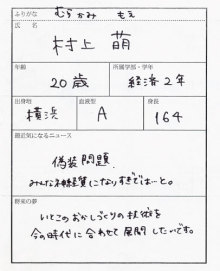 ふりがな むらかみ もえ
氏名
村上 萌
年齢 所属学部・学年
20歳 経済2年
出身地 血液型 身長
横浜 A 164
最近気になるニュース
偽装問題.
みんな神経質になりすぎでは…と。
将来の夢
いとこのおかしづくりの技術を
今の時代に合わせて展開したいです。